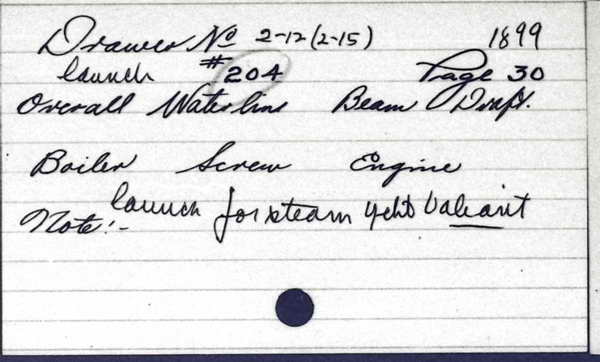 Drawer No 2-12 (2-15) 1899
launch #204 Page 30
Overall Waterline Beam Draft.
Boiler Screw Engine
Note:- launch for steam ycht Valiant